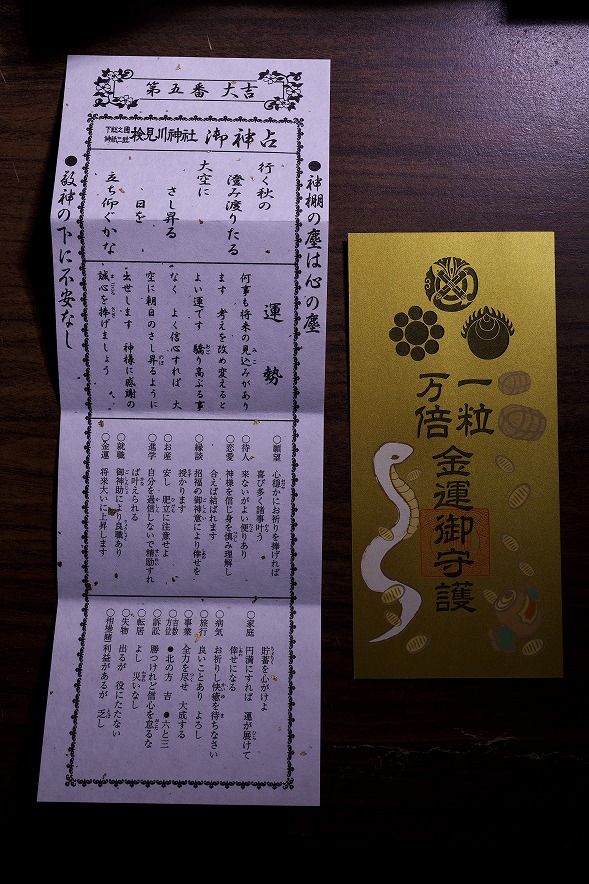 第五番 大吉
下総之国
神祇三社
検見川神社 御神占
●神棚の塵は心の塵
行く秋の
澄み渡りたる
大空に
さし昇る
日を
立ち仰ぐかな
●敬神の下に不安なし
運勢
何事も将来の見込みがあり
ます 考えを改め変えると
よい運です 驕り高ぶる事
なく よく信心すれば 大
空に朝日のさし昇るように
出世します 神様に感謝の
誠心を捧げましょう
○願望 心穏かにお祈りを捧げれば
喜び多く諸事叶う
○待人 来ないがよい便りあり
○恋愛 神様を信じ身を慎み理解し
合えば結ばれます
○縁談 招福の御神意により倖せを
授かります
○お産 安し 肥立に注意せよ
○進学 自分を過信しないで精励すれ
ば叶えられる
○就職 御神助により良職あり
○金運 将来大いに上昇します
貯蓄を心がけよ
○家庭 円満にすれば 運が展けて
倖せになる
○病気 お祈りし快癒を待ちなさい
○旅行 良いことあり よろし
○事業 全力を尽せ 大成する
○吉数方位 ●北の方 吉 ●六と三
○訴訟 勝つけれど信心を怠るな
○転居 よし 災いなし
○失物 出るが 役にたたない
○相場賭 利益があるが 乏し
一粒
万倍
金運御守護